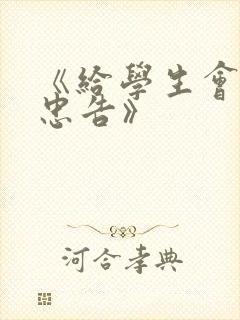 《給學生會
忠告》
河合孝典